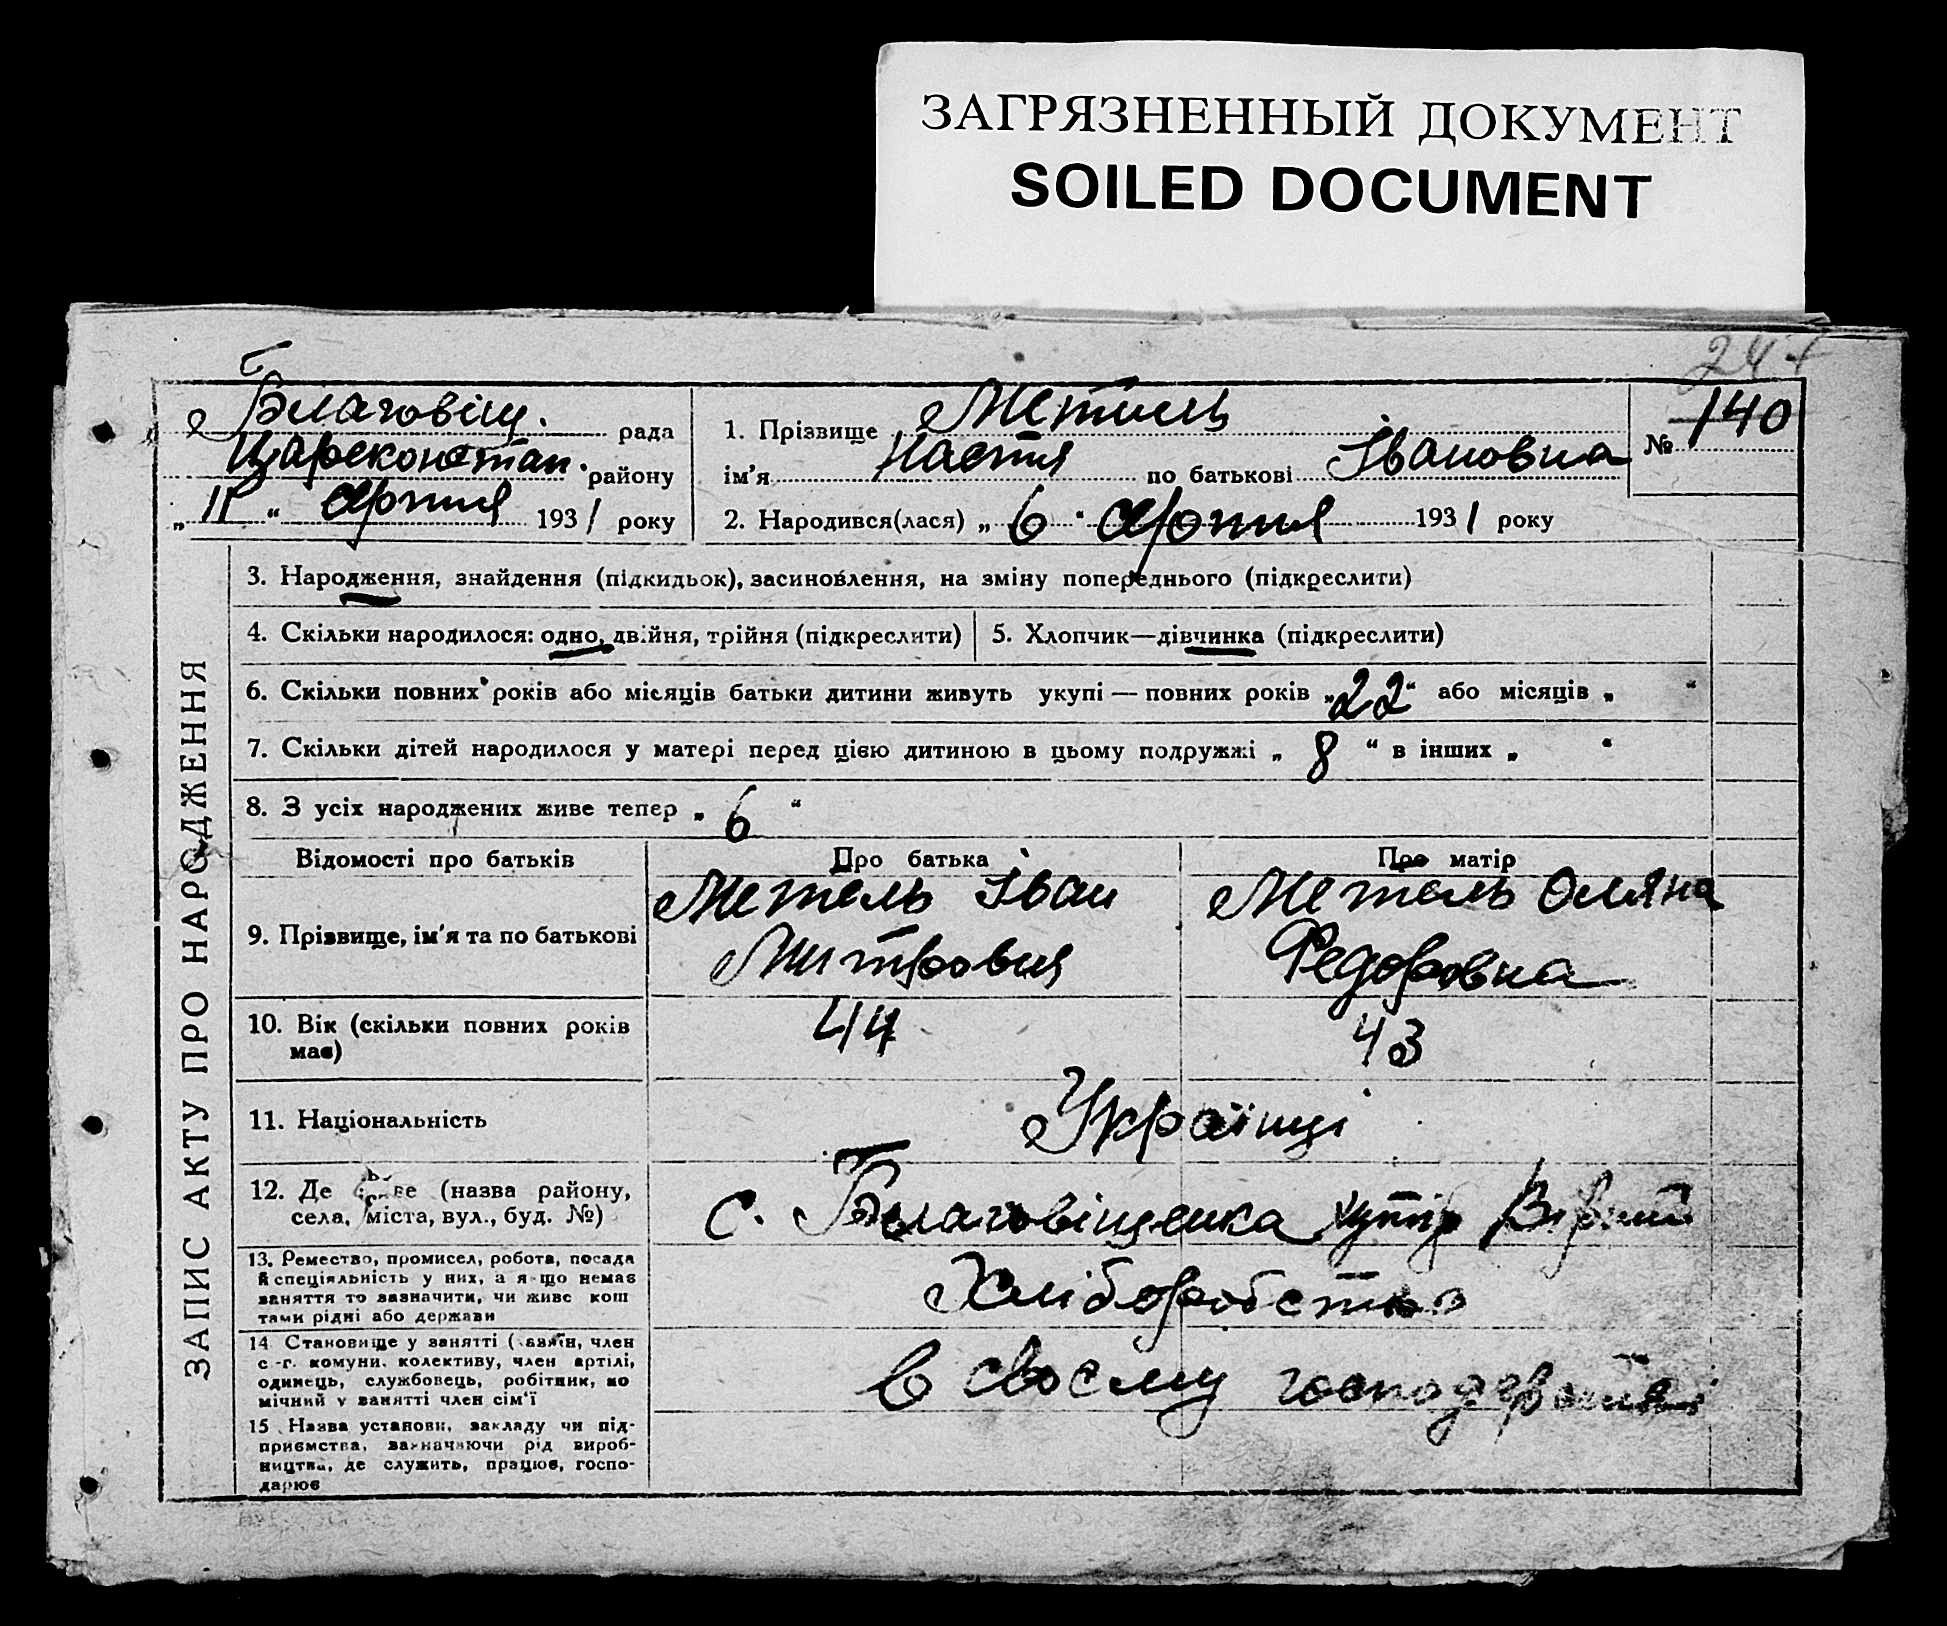 ЗАГРЯЗНЕННЫЙ ДОКУМЕНТ
SOILED DOCUMENT
Благовіщ. рада
Цареконстан. району
„ 11 “ Квітня 1931 року
1. Прізвище Метель
ім'я Настя по батькові Івановна
2. Народився(лася) „ 6 “ 1931 року
№ 140
ЗАПИС АКТУ ПРО НАРОДЖЕННЯ
3. Народження, знайдення (підкидьок), засиновлення, на зміну попереднього (підкреслити)
4. Скільки народилося: одно, двійня, трійня (підкреслити)
5. Хлопчик—дівчинка (підкреслити)
6. Скільки повних років або місяців батьки дитини живуть укупі — повних років „22“ або місяців „ “
7. Скільки дітей народилося у матері перед цією дитиною в цьому подружжі „ 8 “ в інших „ “
8. З усіх народжених живе тепер „ 6 “
Відомості про батьків
Про батька
Про матір
9. Прізвище, ім'я та по батькові
Метель Іван
Митрович
Метель Оляна
Федоровна
10. Вік (скільки повних років
має)
44
43
11. Національність
Українці
12. Де живе (назва району,
села, міста, вул., буд. №)
с. Благовіщенка хутір
13. Ремество, промисел, робота, посада
й спеціяльність у них, а якщо немає
заняття то зазначити, чи живе кош
тами рідні або держави
Хліборобство
14 Становище у занятті (хазяїн, член
с.-г. комуни, колективу, член артілі,
одинець, службовець, робітник, по
мічний у занятті член сім'ї
в своєму господарстві
15 Назва установи, закладу чи під-
приємства, зазначаючи рід вироб-
ництва, де служить, працює, госпо-
дарює